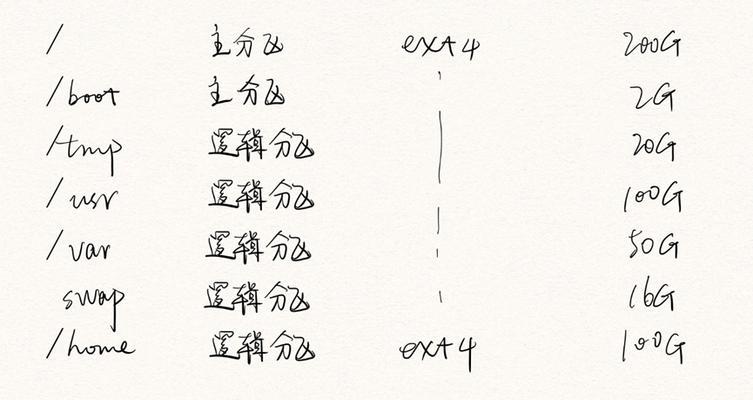 / 主分区 ext4 200G
/boot 主分区 2G
/tmp 逻辑分区 20G
/usr 逻辑分区 100G
/var 逻辑分区 50G
swap 逻辑分区 16G
/home 逻辑分区 ext4 100G